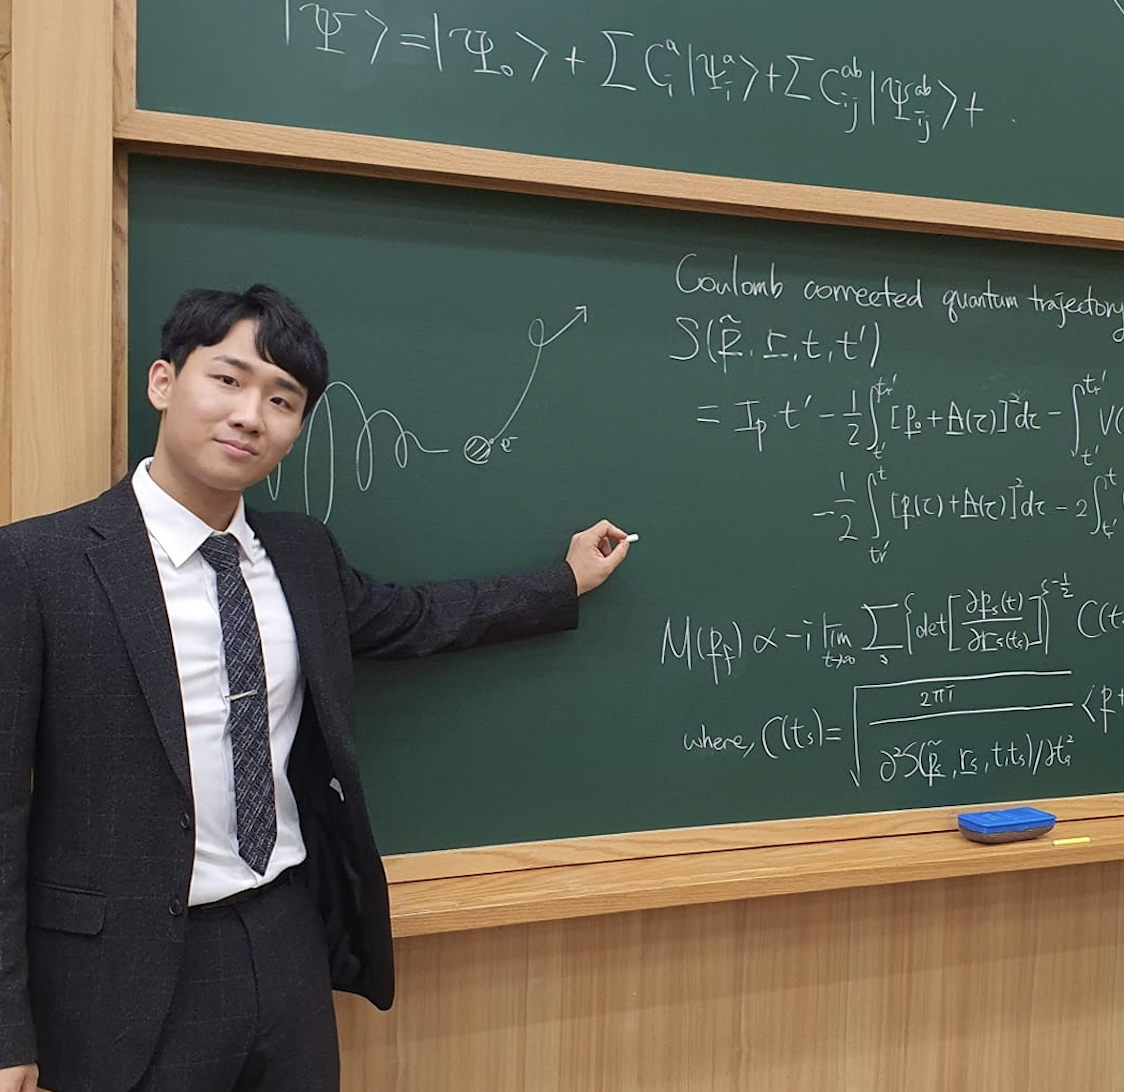 |Ψ⟩=|Ψ₀⟩+∑Cᵢᵃ|Ψᵢᵃ⟩+∑Cᵢⱼᵃᵇ|Ψᵢⱼᵃᵇ⟩+
Coulomb corrected quantum trajectory
S(p̃, r, t, t')
= Iₚ·t' - 1/2 ∫_{t'}^{tᵣ'} [p₀+A(τ)]²dτ - ∫_{t'}^{tᵣ'} V(
-1/2 ∫_{tᵣ'}^{t} [p(τ)+A(τ)]²dτ - 2∫_{tᵣ'}^{t}
e⁻
M(p_f) ∝ -i lim_{t→∞} ∑_s {det[∂pₛ(t)/∂rₛ(tₛ)]}^{-1/2} C(tₛ
where, C(tₛ)=√(2πi/∂²S(p̃ₛ, rₛ, t, tₛ)/∂tₛ²) ⟨p+